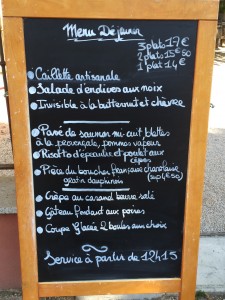 Menu Déjeuner
3 plats 17€
2 plats 15€50
1 plat 14€
Caillette artisanale
Salade d'endives aux noix
Invisible à la butternut et chèvre
Pavé de saumon mi-cuit blettes
à la provençale, pommes vapeur
Risotto d'épeautre et poulet aux
cèpes
Pièce du boucher française charolaise
gratin dauphinois (sup 4€50)
Crêpe au caramel beurre salé
Gâteau fondant aux poires
Coupe Glacée 2 boules aux choix
Service à partir de 12H15